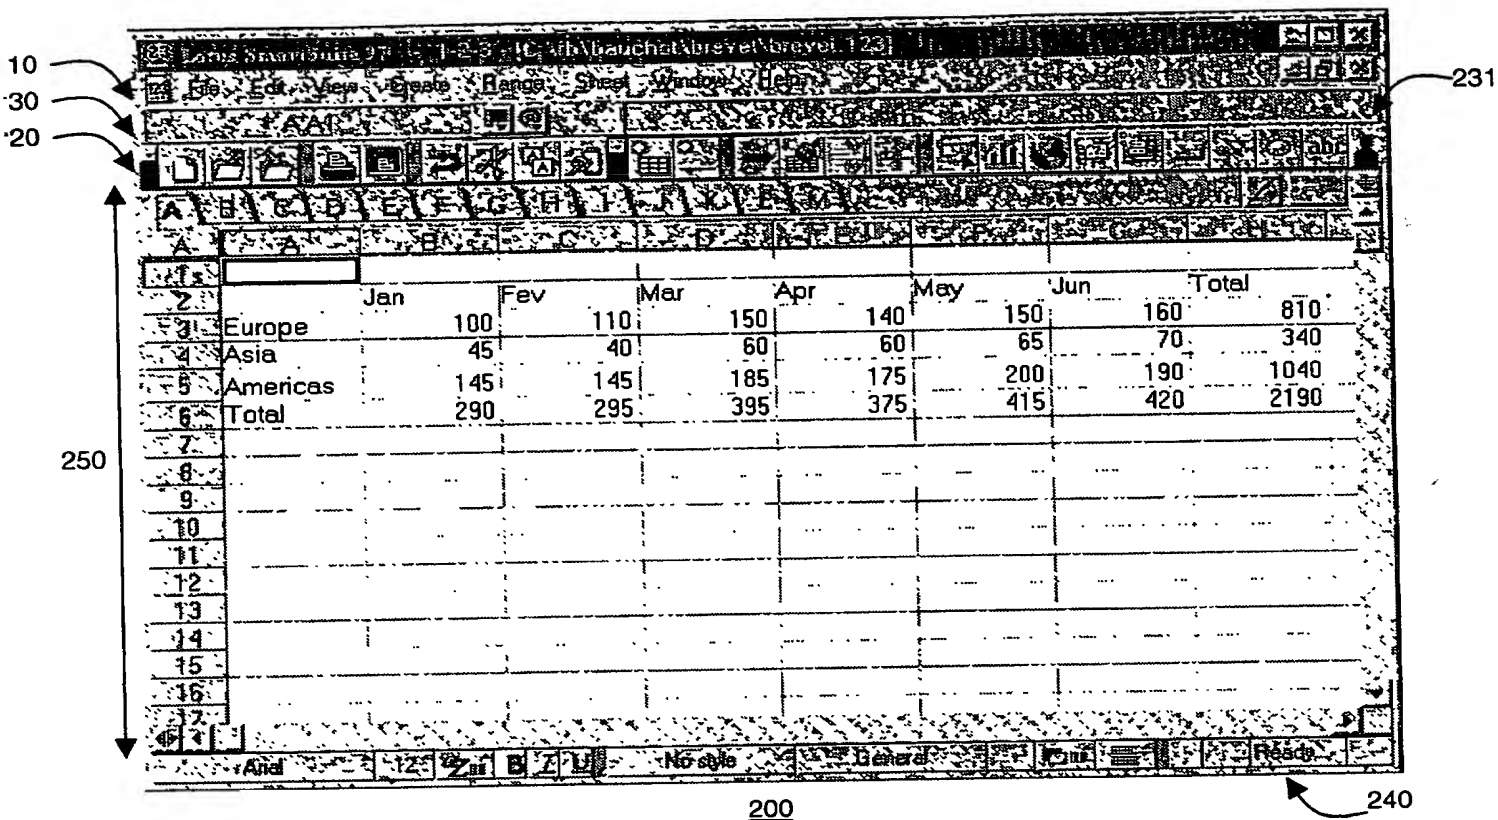 10
30
20
231
File Edit View Create Range Sheet Window Help
A:A1
abc
A B C D E F G H I J K L M
A A B C D E F G
1
2 Jan Fev Mar Apr May Jun Total
3 Europe 100 110 150 140 150 160 810
4 Asia 45 40 60 60 65 70 340
5 Americas 145 145 185 175 200 190 1040
6 Total 290 295 395 375 415 420 2190
7
8
9
10
11
12
13
14
15
16
17
250
Arial 12 B I U No style General Ready
240
200